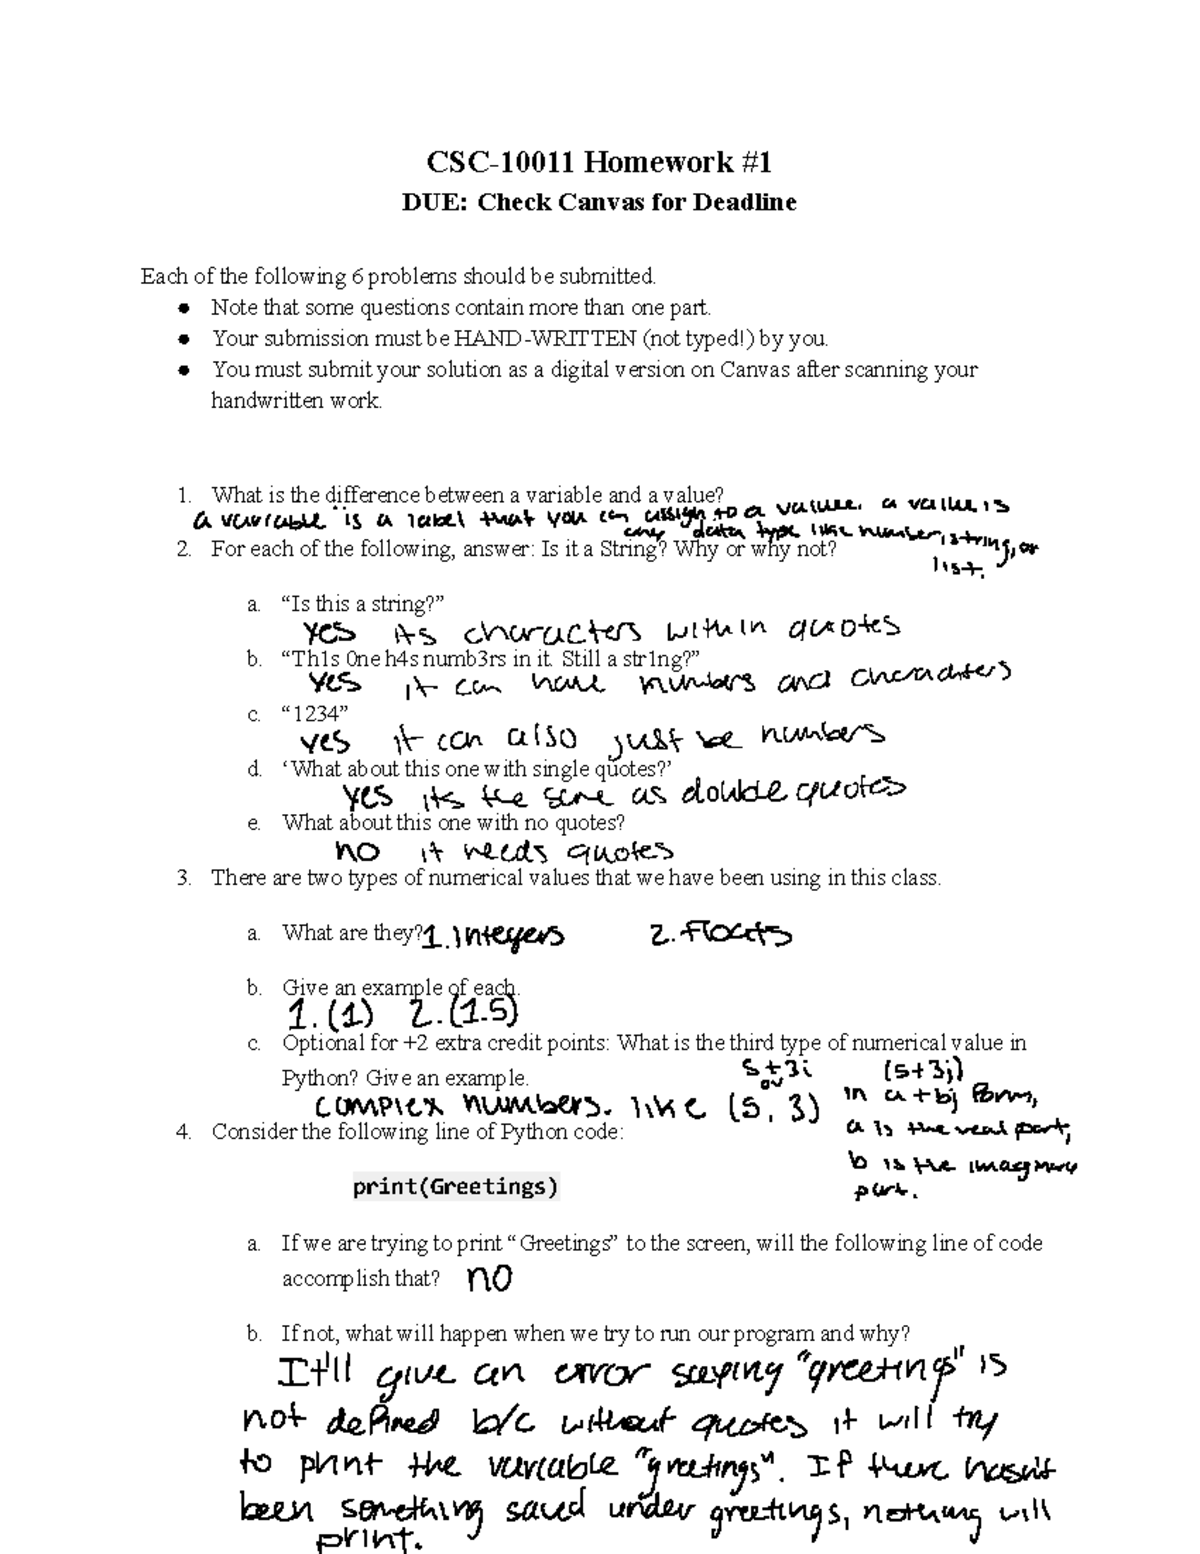 CSC-10011 Homework #1
DUE: Check Canvas for Deadline
Each of the following 6 problems should be submitted.
● Note that some questions contain more than one part.
● Your submission must be HAND-WRITTEN (not typed!) by you.
● You must submit your solution as a digital version on Canvas after scanning your
handwritten work.
1. What is the difference between a variable and a value?
a variable is a label that you can assign to a value. a value is
any data type like number, string, or
list.
2. For each of the following, answer: Is it a String? Why or why not?
a. “Is this a string?”
yes its characters within quotes
b. “Th1s 0ne h4s numb3rs in it. Still a str1ng?”
yes it can have numbers and characters
c. “1234”
yes it can also just be numbers
d. ‘What about this one with single quotes?’
yes its the same as double quotes
e. What about this one with no quotes?
no it needs quotes
3. There are two types of numerical values that we have been using in this class.
a. What are they? 1. Integers 2. Floats
b. Give an example of each.
1. (1) 2. (1.5)
c. Optional for +2 extra credit points: What is the third type of numerical value in
Python? Give an example.
5+3i (5+3j)
or
complex numbers. like (5, 3)
in a+bj form,
a is the real part,
b is the imaginary
part.
4. Consider the following line of Python code:
print(Greetings)
a. If we are trying to print “Greetings” to the screen, will the following line of code
accomplish that? no
b. If not, what will happen when we try to run our program and why?
It'll give an error saying "greetings" is
not defined b/c without quotes it will try
to print the variable "greetings". If there hasn't
been something saved under greetings, nothing will
print.